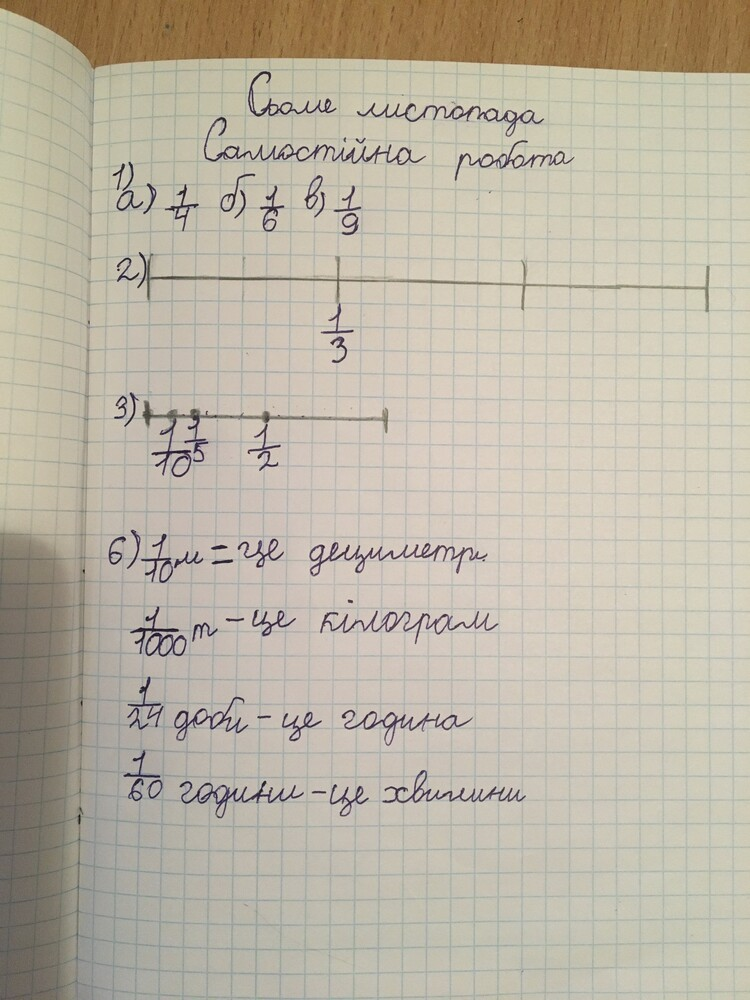 Сьоме листопада
Самостійна робота
1)
а) 1/4 б) 1/6 в) 1/9
2)
1/3
3)
1/10 1/5 1/2
6) 1/10 м = це дециметр.
1/1000 т – це кілограм
1/24 доби – це година
1/60 години – це хвилини